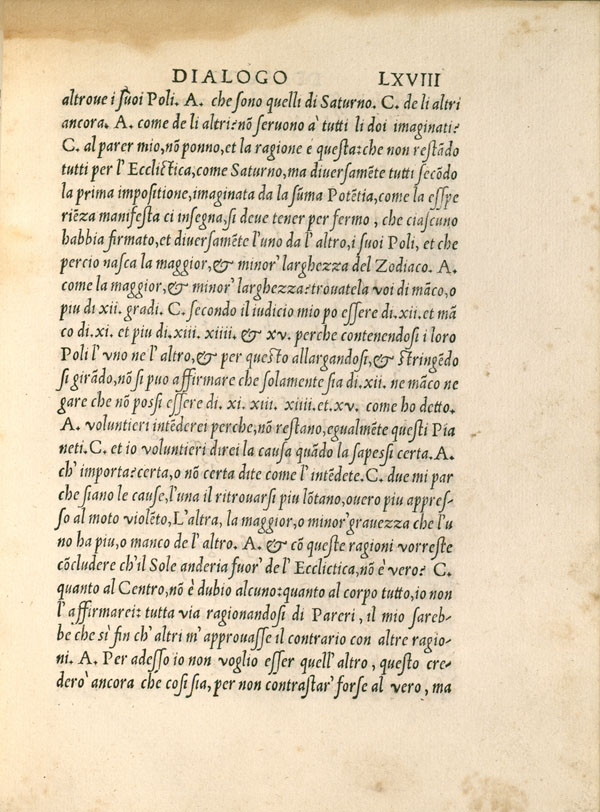 DIALOGO LXVIII
altroue i suoi Poli. A. che sono quelli di Saturno. C. de li altri
ancora. A. come de li altri? nõ seruono à tutti li doi imaginati?
C. al parer mio, nõ ponno, et la ragione e questa: che non restãdo
tutti per l'Ecclictica, come Saturno, ma diuersamẽte tutti secõdo
la prima impositione, imaginata da la sũma Potẽtia, come la espe
riẽza manifesta ci insegna, si deue tener per fermo, che ciascuno
habbia firmato, et diuersamẽte l'uno da l'altro, i suoi Poli, et che
percio nasca la maggior, & minor' larghezza del Zodiaco. A.
come la maggior, & minor' larghezza? trouatela voi di mãco, o
piu di xii. gradi. C. secondo il iudicio mio po essere di. xii. et mã
co di. xi. et piu di. xiii. xiiii. & xv. perche contenendosi i loro
Poli l'vno ne l'altro, & per questo allargandosi, & stringẽdo
si girãdo, nõ si puo affirmare che solamente sia di. xii. ne mãco ne
gare che nõ possi essere di. xi. xiii. xiiii. et. xv. come ho detto.
A. voluntieri intẽderei perche, nõ restano, egualmẽte questi Pia
neti. C. et io voluntieri direi la causa quãdo la sapessi certa. A.
ch'importa? certa, o nõ certa dite come l'intẽdete. C. due mi par
che siano le cause, l'una il ritrouarsi piu lõtano, ouero piu appres-
so al moto violẽto, L'altra, la maggior, o minor' grauezza che l'u
no ha piu, o manco de l'altro. A. & cõ queste ragioni vorreste
cõcludere ch'il Sole anderia fuor' de l'Ecclictica, nõ è vero? C.
quanto al Centro, nõ è dubio alcuno: quanto al corpo tutto, io non
l'affirmarei: tutta via ragionandosi di Pareri, il mio sareb-
be che sì fin ch'altri m'approuasse il contrario con altre ragio-
ni. A. Per adesso io non voglio esser quell'altro, questo cre-
derò ancora che cosi sia, per non contrastar' forse al vero, ma